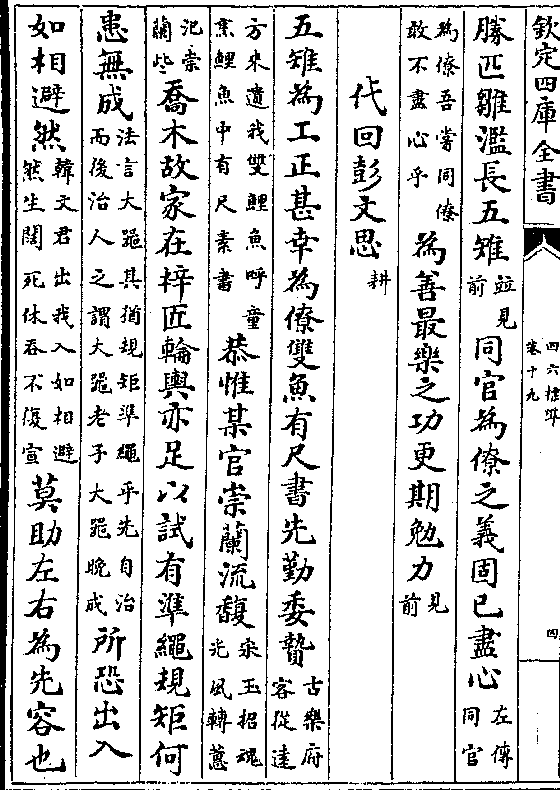 欽定四庫全書
四六標準
卷十九
四
勝匹雛濫長五雉並見前同官為僚之義固已盡心左傳同官
為僚吾嘗同僚敢不盡心乎為善最樂之功更期勉力見前
代回彭文思耕
五雉為工正甚幸為僚雙魚有尺書先勤委贄古樂府客從逺
方來遺我雙鯉魚呼童烹鯉魚中有尺素書恭惟某官崇蘭流馥宋玉招魂光風轉蕙
氾崇蘭些喬木故家在梓匠輪輿亦足以試有準繩規矩何
患無成法言大䂓其猶規矩準繩乎先自治而後治人之謂大䂓老子大䂓晚成所恐出入
如相避然韓文君出我入如相避然生闊死休吞不復宣莫助左右為先容也